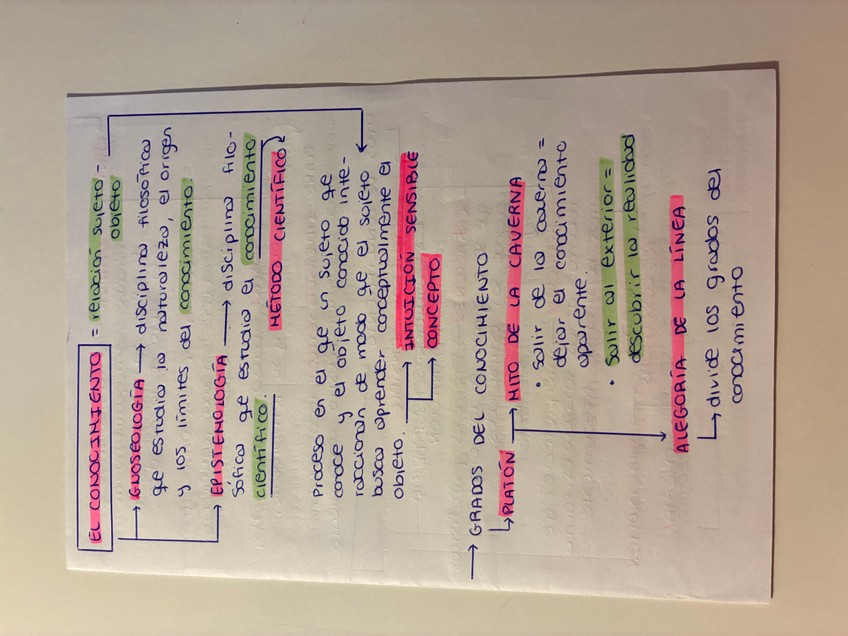 EL CONOCIMIENTO = relación sujeto -
objeto
→ GNOSEOLOGÍA → disciplina filosófica
qe estudia la naturaleza, el origen
y los límites del conocimiento.
→ EPISTEMOLOGÍA → disciplina filo-
sófica qe estudia el conocimiento
científico.
MÉTODO CIENTÍFICO
Proceso en el qe un sujeto qe
conoce y el objeto conocido inte-
raccionan de modo qe el sujeto
busca aprender conceptualmente el
objeto.
→ INTUICIÓN SENSIBLE
→ CONCEPTO
→ GRADOS DEL CONOCIMIENTO
↳ PLATÓN → MITO DE LA CAVERNA
• Salir de la caverna =
dejar el conocimiento
aparente.
• Salir al exterior =
descubrir la realidad
→ ALEGORÍA DE LA LÍNEA
↳ divide los grados del
conocimiento